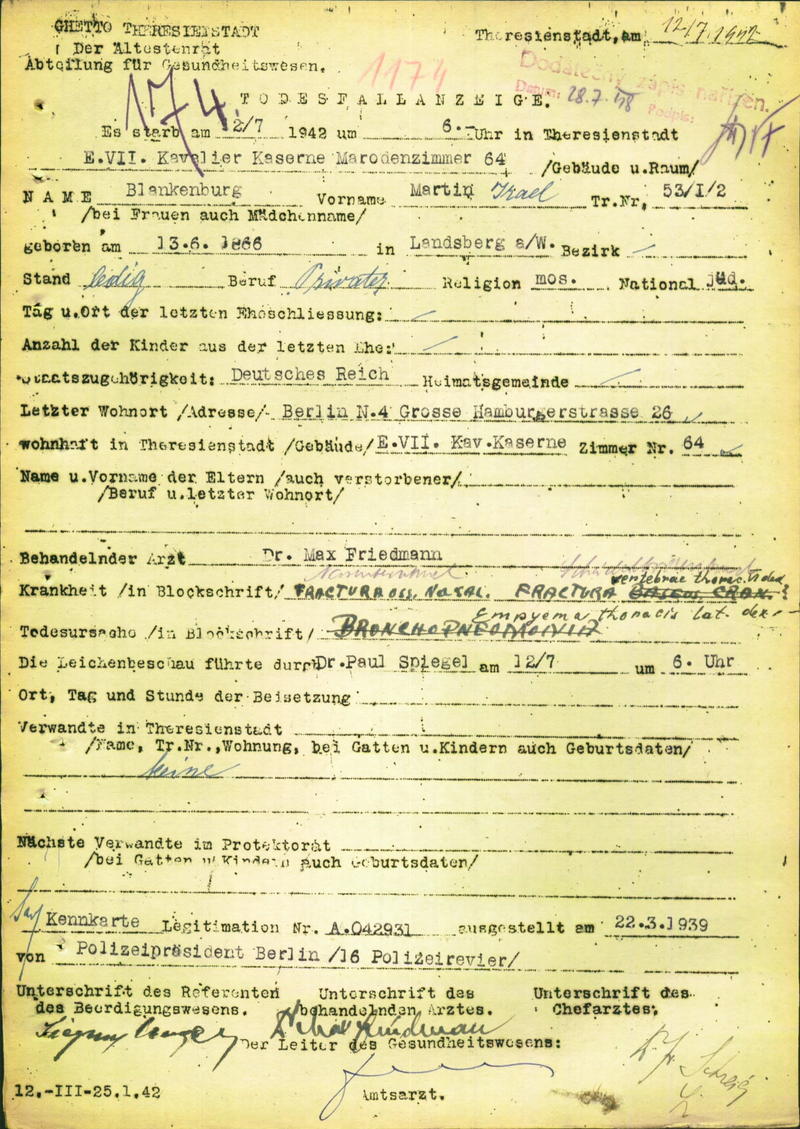 GHETTO THERESIENSTADT
Der Ältestenrat
Abteilung für Gesundheitswesen.
Theresienstadt, am 12/7. 1942
174
1174
Dodatečný zápis nařízen.
Datum: 28.7.48 Podpis:
TODESFALLANZEIGE.
Es starb am 12/7 1942 um 6.- Uhr in Theresienstadt
E.VII. Kavalier Kaserne Marodenzimmer 64 /Gebäude u.Raum/
NAME Blankenburg Vorname Martin Israel Tr.Nr. 53/I/2
/bei Frauen auch Mädchenname/
geboren am 13.6. 1866 in Landsberg a/W. Bezirk
Stand ledig Beruf Privater Religion mos. National jüd.
Tag u.Ort der letzten Eheschliessung:
Anzahl der Kinder aus der letzten Ehe:
Staatszugehörigkeit: Deutsches Reich Heimatsgemeinde
Letzter Wohnort /Adresse/ Berlin N.4 Grosse Hamburgerstrasse 26
wohnhaft in Theresienstadt /Gebäude/ E.VII. Kav.Kaserne Zimmer Nr. 64
Name u.Vorname der Eltern /auch verstorbener/
/Beruf u.letzter Wohnort/
Behandelnder Arzt Dr. Max Friedmann
vertebrae thorac.
Krankheit /in Blockschrift/ FRACTURA OSS. NASAL. FRACTURA BASEOS CRAN.
Empyema thoracis lat. dex.
Todesursache /in Blockschrift/ BRONCHOPNEUMONIA
Die Leichenbeschau führte durch Dr.Paul Spiegel am 12/7 um 6. Uhr
Ort, Tag und Stunde der Beisetzung
Verwandte in Theresienstadt
/Name, Tr.Nr.,Wohnung, bei Gatten u.Kindern auch Geburtsdaten/
keine
Nächste Verwandte im Protektorat
/bei Gatten u.Kindern auch Geburtsdaten/
Kennkarte Legitimation Nr. A.042931 ausgestellt am 22.3.1939
von Polizeipräsident Berlin /16 Polizeirevier/
Unterschrift des Referenten Unterschrift des Unterschrift des
des Beerdigungswesens. behandelnden Arztes. Chefarztes.
Der Leiter des Gesundheitswesens:
12.-III-25.1.42 Amtsarzt.